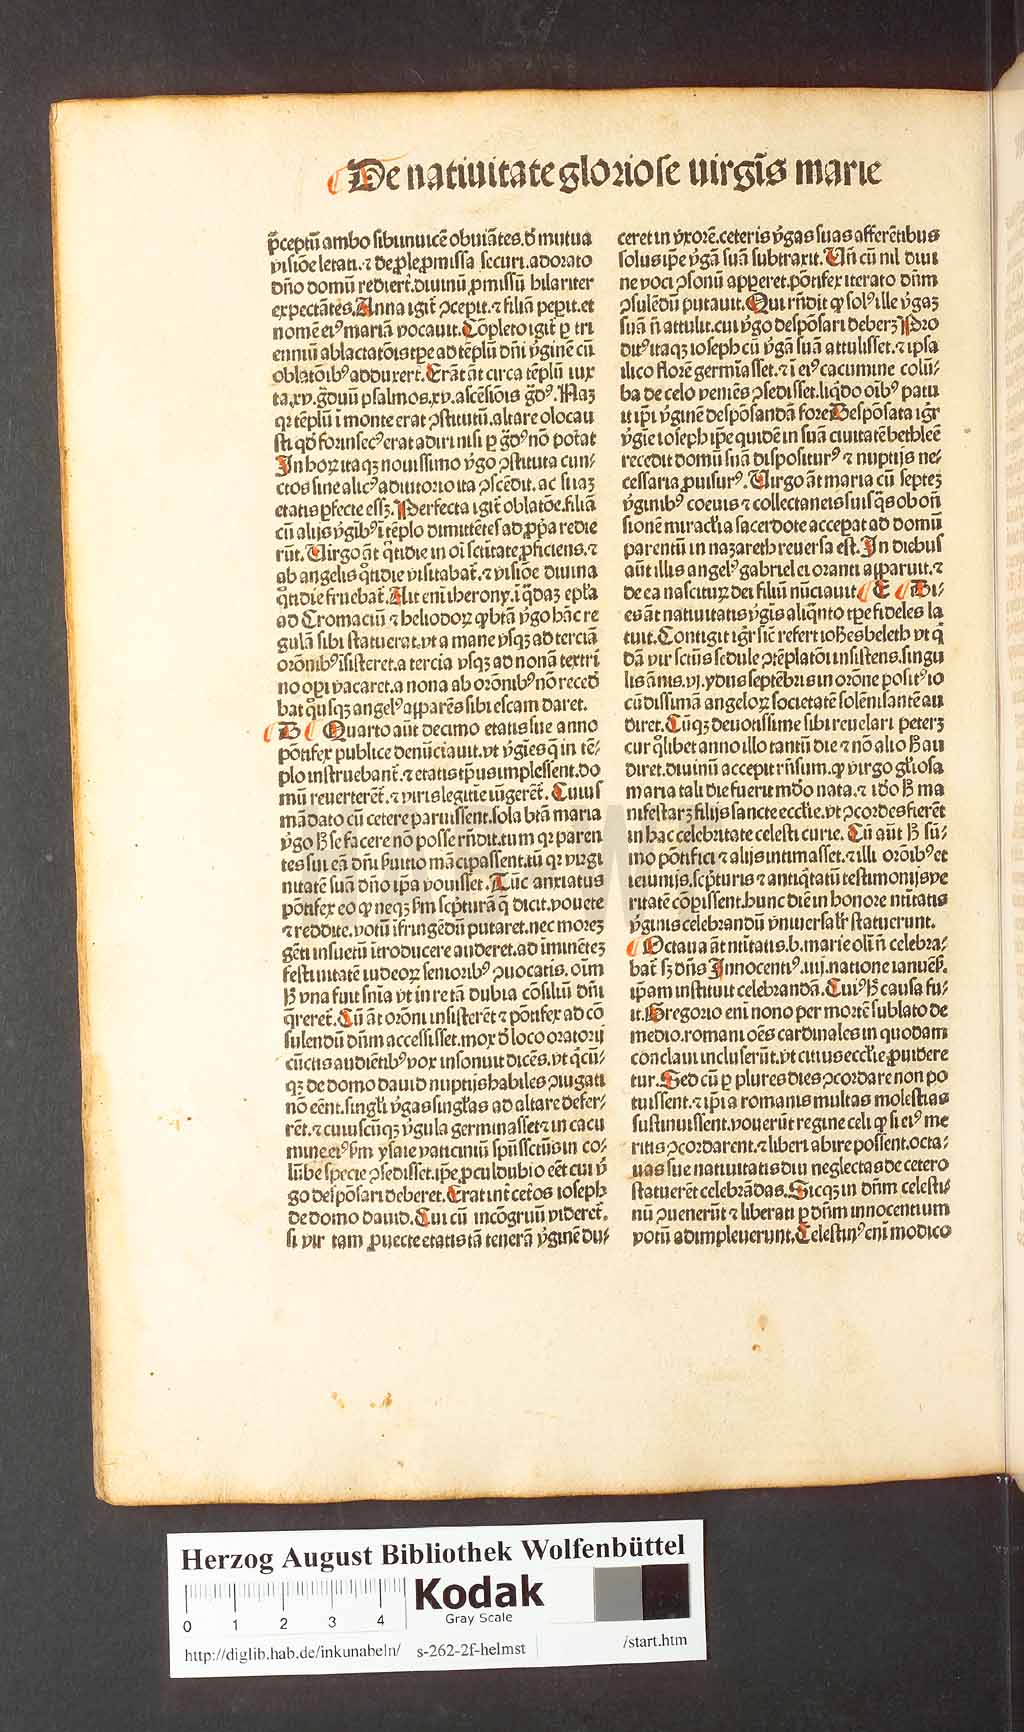 De natiuitate gloriose uirgīs marie
p̄ceptū ambo sibi inuicē obuiātes. ꝺ mutua
visiōe letati. ⁊ de ꝓle ꝓmissa securi. adorato
dn̄o domū redierēt. diuinū ꝓmissū hilariter
expectātes. Anna igit̄ ꝯcepit. ⁊ filiā peꝑit. et
nomē eiꝰ mariā vocauit. Cōpleto igit̄ ꝑ tri
enniū ablactatōis tꝑe ad tēplū dn̄i v̓ginē cū
oblatōibꝰ adduxerūt. Erāt āt circa tēplū iux
ta. xv. g̊duū psalmos. xv. ascēsiōis g̊dꝰ. Naꝫ
qꝛ tēplū ī monte erat ꝯstitutū. altare olocau
sti qd̓ forinsecꝰ erat adiri nisi ꝑ g̊dꝰ nō poterat
In hoꝝ itaqꝫ nouissimo v̓go ꝯstituta cun-
ctos sine alicꝰ adiutorio ita ꝯscēdit. ac si iaꝫ
etatis ꝑfecte essꝫ. Perfecta igit̄ oblatōe. filiā
cū alijs v̓gibꝰ ī tēplo dimittētes ad ꝓpa redie
rūt. Uirgo āt q̊tidie in oī sc̄titate ꝓficiens. ⁊
ab angelis q̊tidie visitabat̄. ⁊ visiōe diuina
q̊tidie fruebat̄. Ait eni iherony. ī q̄daꝫ epl̄a
ad Cromaciū ⁊ heliodoꝝ ꝙ btā v̓go hāc re
gulā sibi statuerat. vt a mane vsqꝫ ad terciā
orōnibꝰ īsisteret. a tercia vsqꝫ ad nonā textri
no oꝑi vacaret. a nona ab orōnibꝰ nō recede
bat q̊usqꝫ angelꝰ apparēs sibi escam daret.
B Quarto aūt decimo etatis sue anno
pōtifex publice denūciauit. vt v̓gīes q̄ in tē-
plo instruebant̄. ⁊ etatis tꝑus implessent. do
mū reuerterēt̄. ⁊ viris legitīe iūgerēt̄. Cuius
mādato cū cetere paruissent. sola btā maria
v̓go ꝑ se facere nō posse rn̄dit. tum qꝛ paren
tes sui eā dn̄i ẜuitio mācipassent. tū qꝛ virgi
nitatē suā dn̄o ip̄a vouisset. Tūc anxiatus
pōtifex eo ꝙ neqꝫ ẜm scpturā q̄ dicit. vouete
⁊ reddite. votū ifringēdū putaret. nec moreꝫ
gēti insuetū ītroducere auderet. ad iminēteꝫ
festiuitatē iudeoꝝ senioribꝰ ꝯuocatis. oīm
ꝑ vna fuit sn̄ia vt in re tā dubia cōsiliū dn̄i
q̄reret̄. Cū āt orōni insisterēt ⁊ pōtifex ad cō
sulendū dn̄m accessisset. mox ꝺ loco oratorij
cūctis audiētibꝰ vox insonuit dicēs. vt q̄cū-
qꝫ de domo dauid nuptijs habiles ꝯiugati
nō eēnt. singl̓i v̓gas singl̓as ad altare defer-
rēt. ⁊ cuiuscūqꝫ v̓gula germinasset ⁊ in cacu
mine eiꝰ ẜm ysaie vaticiniū spūssctūs in co-
lūbe specie ꝯsedisset. ip̄e ꝓculdubio eēt cui v̓
go despōsari deberet. Erat int̄ cetos ioseph
de domo dauid. Cui cū incōgruū videret̄.
si vir tam ꝓuecte etatis tā tenerā v̓ginē du-
ceret in vxorē. ceteris v̓gas suas afferētibus
solus ip̄e v̓gā suā subtraxit. Vn̄ cū nil diui
ne voci ꝯsonū apꝑeret. pōtifex iterato dn̄m
ꝯsulēdū putauit. Qui rn̄dit ꝙ solꝰ ille v̓gaꝫ
suā n̄ attulit. cui v̓go despōsari deberꝫ Pro
ditꝰ itaqꝫ ioseph cū v̓gā suā attulisset. ⁊ ipsa
ilico florē germīasset. ⁊ ī eiꝰ cacumine colū-
ba de celo veniēs ꝯsedisset. liq̄do oībꝰ patu
it ip̄i v̓ginē despōsandā fore Despōsata igr̄
v̓gīe ioseph ip̄e quidē in suā ciuitatē bethleē
recedit domū suā dispositurꝰ ⁊ nuptijs ne-
cessaria ꝓuisurꝰ. Uirgo āt maria cū septeꝫ
v̓ginibꝰ coeuis ⁊ collectaneis suis q̄s ob on̄
sionē miracl̓i a sacerdote acceꝑat ad domū
parentū in nazareth reuersa est. In diebus
aūt illis angelꝰ gabriel ei oranti apparuit. ⁊
de ea nascituꝝ dei filiū nūciauit C Di-
es āt natiuitatis v̓gīs aliq̄nto tꝑe fideles la
tuit. Contigit igr̄ sic̄ refert ioh̄es beleth vt q̄
dā vir sctūs sedule ꝯtēplatōi insistens. singu
lis ānis. vi. ydus septēbris in orōne positꝰ io
cūdissimā angeloꝝ societatē solēnisantē au
diret. Cūqꝫ deuotissime sibi reuelari peterꝫ
cur q̄libet anno illo tantū die ⁊ nō alio ꝑ au
diret. diuinū accepit rn̄sum. ꝙ virgo gl̓iosa
maria tali die fuerit mūdo nata. ⁊ idō ꝑ ma
nifestarꝫ filijs sancte eccl̓ie. vt ꝯcordes fierēt
in hac celebritate celesti curie. Cū aūt ꝑ sū-
mo pōtifici ⁊ alijs intimasset. ⁊ illi orōibꝰ et
ieiunijs. scp̄turis ⁊ antiq̄tatū testimonijs ve
ritatē cōpissent. hunc diē in honore nt̄itatis
v̓ginis celebrandū vniuersal̓r statuerunt.
Octaua āt nt̄itatis. b. marie olī n̄ celebra-
bat̄ sꝫ dn̄s Innocentiꝰ. iiij. natione ianuēn̄.
ip̄am instituit celebrandā. Cuiꝰ ꝑ causa fu-
it. Gregorio eni nono per mortē sublato de
medio. romani oēs cardinales in quodam
conclaui incluserūt. vt citius eccl̓ie ꝓuidere
tur. Sed cū ꝑ plures dies ꝯcordare non po
tuissent. ⁊ ip̄i a romanis multas molestias
sustinuissent. vouerūt regine celi ꝙ si eiꝰ me
ritis ꝯcordarent. ⁊ liberi abire possent. octa-
uas sue natiuitatis diu neglectas de cetero
statuerēt celebrādas. Sicqꝫ in dn̄m celesti-
nū ꝯuenerūt ⁊ liberati ꝑ dn̄m innocentium
votū adimpleuerunt. Celestinꝰ eni modico
Herzog August Bibliothek Wolfenbüttel
Kodak
Gray Scale
0 1 2 3 4
http://diglib.hab.de/inkunabeln/ s-262-2f-helmst /start.htm